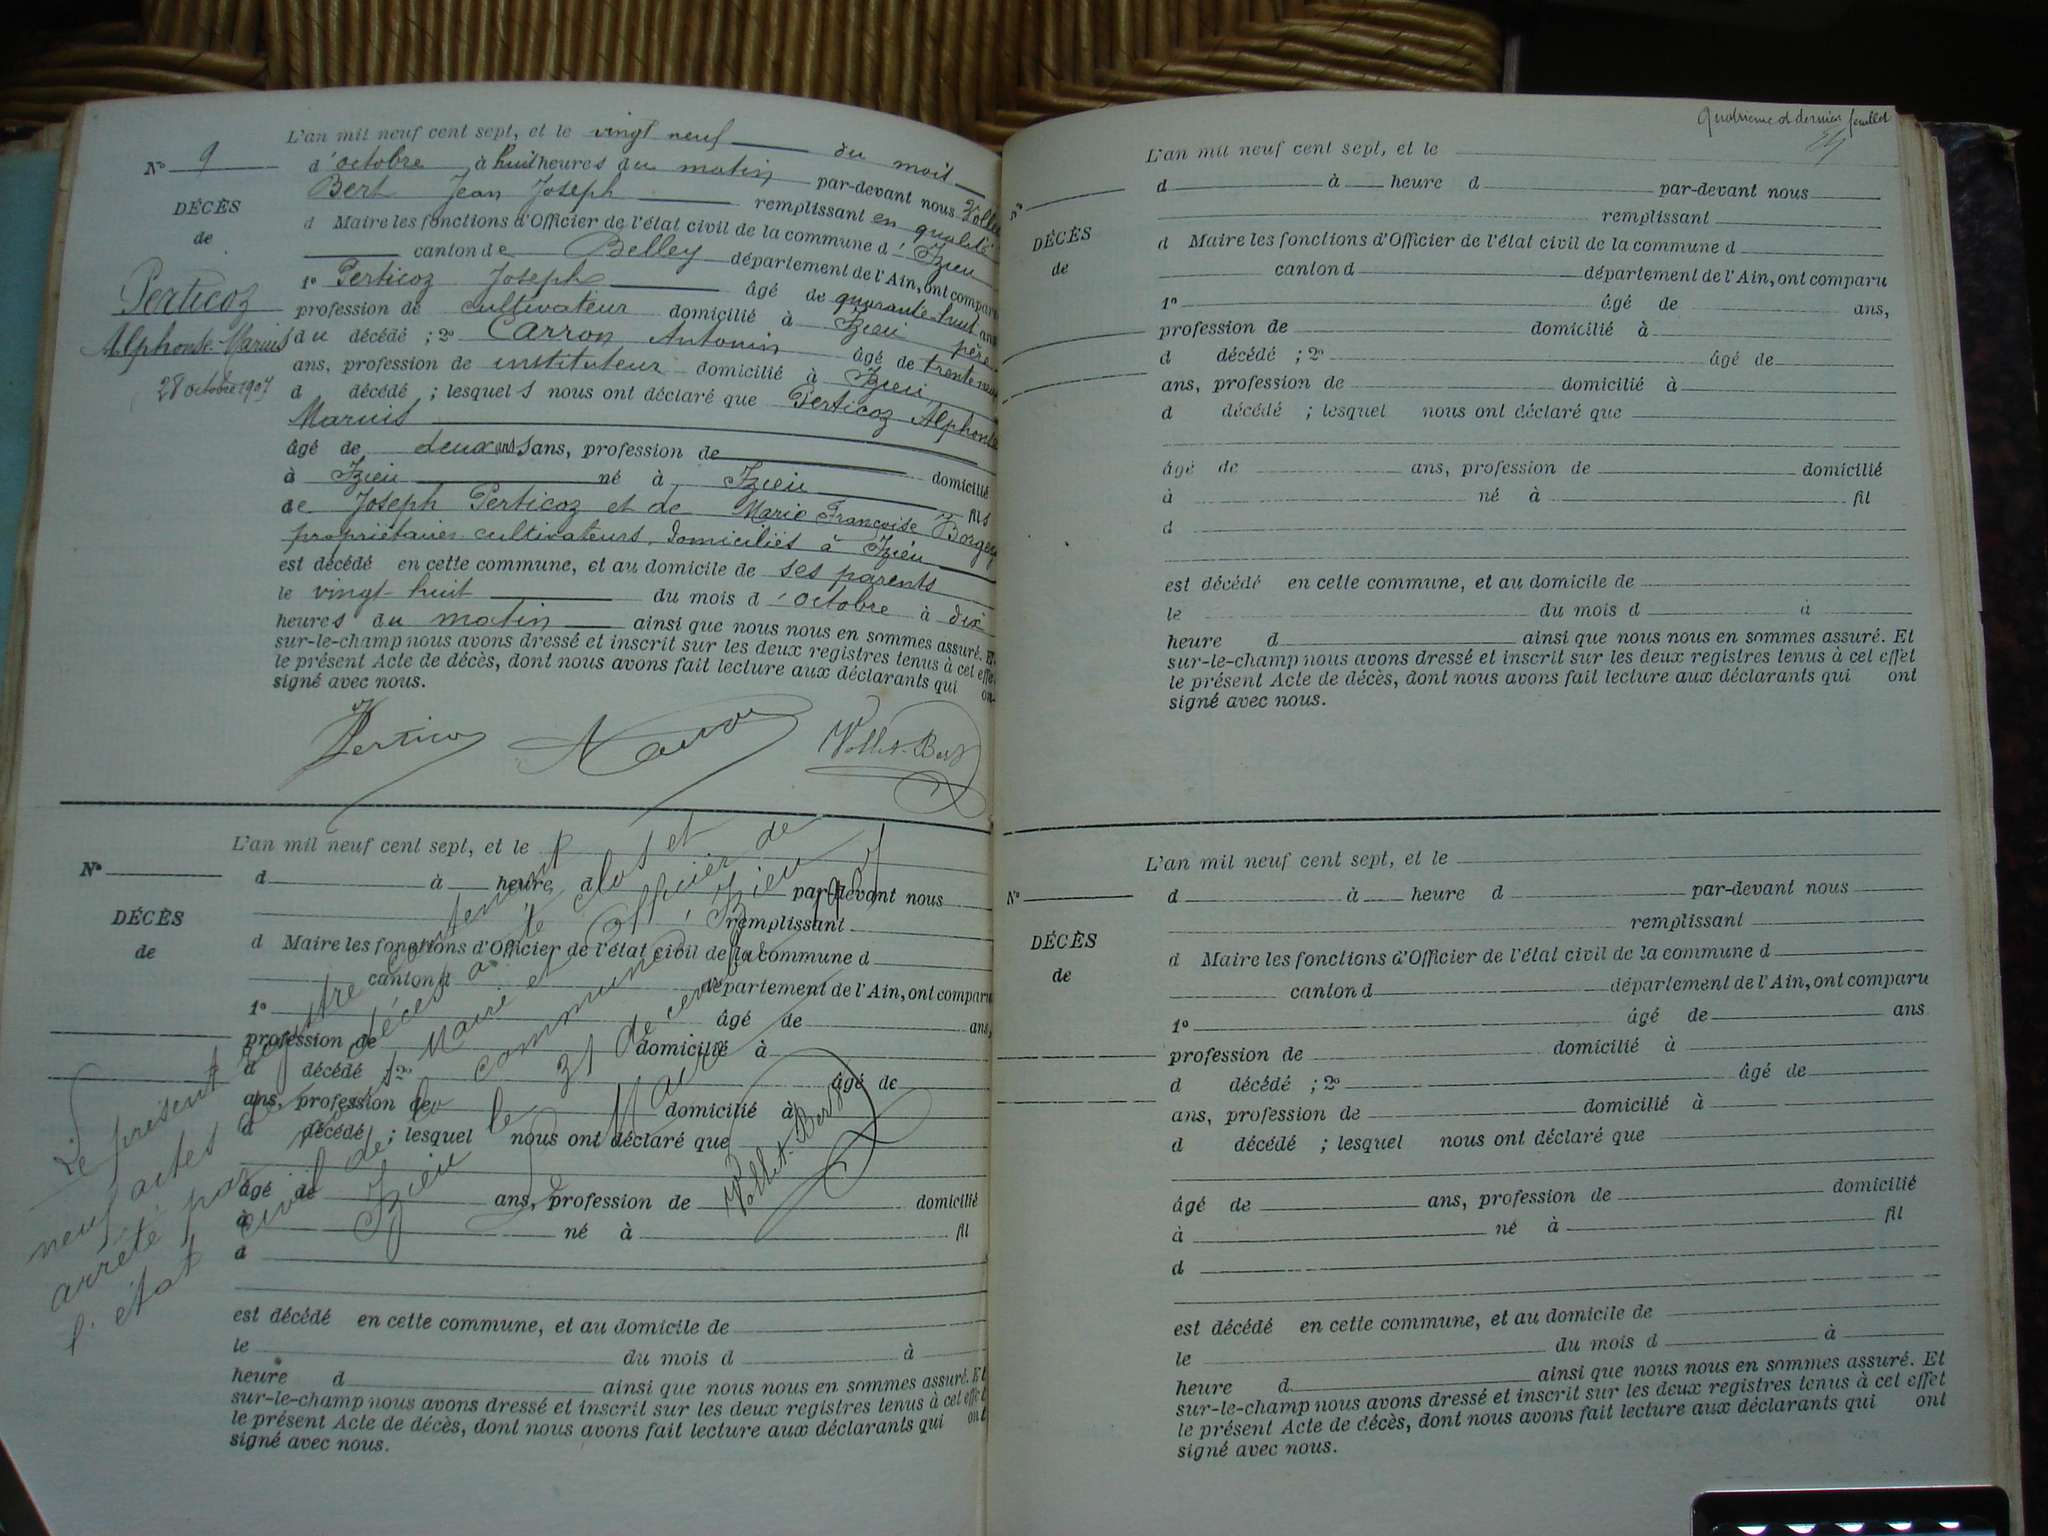 L'an mil neuf cent sept, et le vingt neuf du mois
N° 9
d'octobre à huit heures du matin par-devant nous Vollet
Bert Jean Joseph remplissant en qualité
DÉCÈS
de
d Maire les fonctions d'Officier de l'état civil de la commune d'Izieu
canton de Belley département de l'Ain, ont comparu
1° Perticoz Joseph âgé de quarante huit ans
Perticoz
Alphonse Marius
28 octobre 1907
profession de cultivateur domicilié à Izieu père
du décédé ; 2° Carron Antonin âgé de trente neuf
ans, profession de instituteur domicilié à Izieu
d décédé ; lesquels nous ont déclaré que Perticoz Alphonse
Marius
âgé de deux ans, profession de
domicilié
à Izieu né à Izieu fils
de Joseph Perticoz et de Marie Françoise Borgey
propriétaires cultivateurs, domiciliés à Izieu
est décédé en cette commune, et au domicile de ses parents
le vingt huit du mois d'octobre à dix
heures du matin ainsi que nous nous en sommes assuré. Et
sur-le-champ nous avons dressé et inscrit sur les deux registres tenus à cet effet
le présent Acte de décès, dont nous avons fait lecture aux déclarants qui ont
signé avec nous.
Perticoz Carron Vollet-Bert
L'an mil neuf cent sept, et le
N°
d à heure d par-devant nous
remplissant
DÉCÈS
de
d Maire les fonctions d'Officier de l'état civil de la commune d
canton d département de l'Ain, ont comparu
1° âgé de ans,
profession de domicilié à
d décédé ; 2° âgé de
ans, profession de domicilié à
d décédé ; lesquel nous ont déclaré que
âgé de ans, profession de domicilié
à né à fil
d
est décédé en cette commune, et au domicile de
le du mois d à
heure d ainsi que nous nous en sommes assuré. Et
sur-le-champ nous avons dressé et inscrit sur les deux registres tenus à cet effet
le présent Acte de décès, dont nous avons fait lecture aux déclarants qui ont
signé avec nous.
Le présent registre contenant
neuf actes de décès a été clos et
arrêté par nous Maire et Officier de
l'état civil de la commune d'Izieu
Izieu le 31 décembre 1907
Le Maire
Vollet-Bert
Quatrième et dernier feuillet
L'an mil neuf cent sept, et le
N°
d à heure d par-devant nous
remplissant
DÉCÈS
de
d Maire les fonctions d'Officier de l'état civil de la commune d
canton d département de l'Ain, ont comparu
1° âgé de ans,
profession de domicilié à
d décédé ; 2° âgé de
ans, profession de domicilié à
d décédé ; lesquel nous ont déclaré que
âgé de ans, profession de domicilié
à né à fil
d
est décédé en cette commune, et au domicile de
le du mois d à
heure d ainsi que nous nous en sommes assuré. Et
sur-le-champ nous avons dressé et inscrit sur les deux registres tenus à cet effet
le présent Acte de décès, dont nous avons fait lecture aux déclarants qui ont
signé avec nous.
L'an mil neuf cent sept, et le
N°
d à heure d par-devant nous
remplissant
DÉCÈS
de
d Maire les fonctions d'Officier de l'état civil de la commune d
canton d département de l'Ain, ont comparu
1° âgé de ans
profession de domicilié à
d décédé ; 2° âgé de
ans, profession de domicilié à
d décédé ; lesquel nous ont déclaré que
âgé de ans, profession de domicilié
à né à fil
d
est décédé en cette commune, et au domicile de
le du mois d à
heure d ainsi que nous nous en sommes assuré. Et
sur-le-champ nous avons dressé et inscrit sur les deux registres tenus à cet effet
le présent Acte de décès, dont nous avons fait lecture aux déclarants qui ont
signé avec nous.